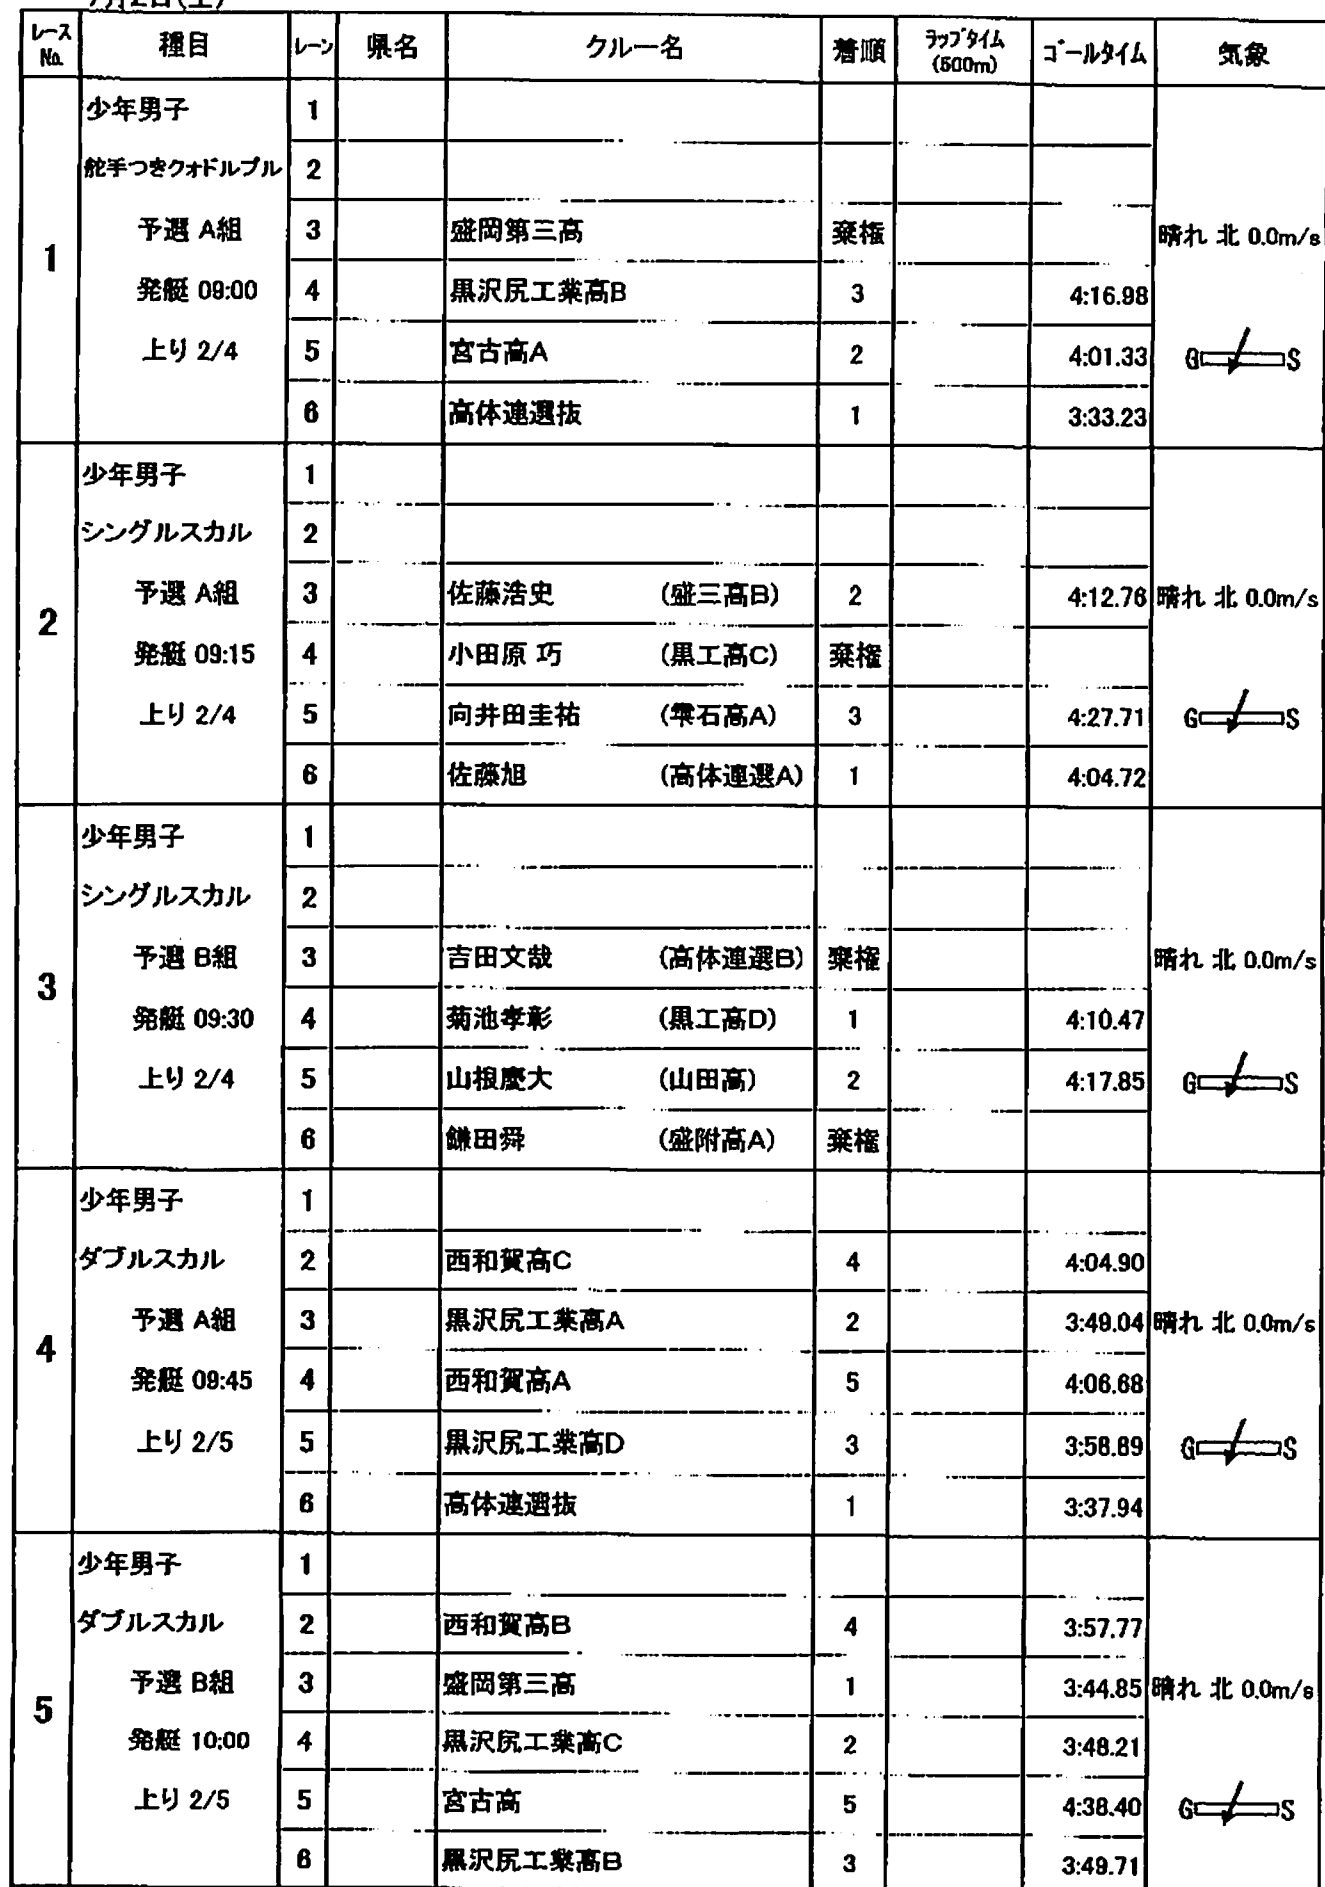 レースNo. 種目 レーン 県名 クルー名 着順 ラップタイム(500m) ゴールタイム 気象
1
少年男子 1
舵手つきクォドルプル 2
予選 A組 3 盛岡第三高 棄権 晴れ 北 0.0m/s
発艇 09:00 4 黒沢尻工業高B 3 4:16.98
上り 2/4 5 宮古高A 2 4:01.33 G S
6 高体連選抜 1 3:33.23
2
少年男子 1
シングルスカル 2
予選 A組 3 佐藤浩史 (盛三高B) 2 4:12.76 晴れ 北 0.0m/s
発艇 09:15 4 小田原 巧 (黒工高C) 棄権
上り 2/4 5 向井田圭祐 (雫石高A) 3 4:27.71 G S
6 佐藤旭 (高体連選A) 1 4:04.72
3
少年男子 1
シングルスカル 2
予選 B組 3 吉田文哉 (高体連選B) 棄権 晴れ 北 0.0m/s
発艇 09:30 4 菊池孝彰 (黒工高D) 1 4:10.47
上り 2/4 5 山根慶大 (山田高) 2 4:17.85 G S
6 鎌田舜 (盛附高A) 棄権
4
少年男子 1
ダブルスカル 2 西和賀高C 4 4:04.90
予選 A組 3 黒沢尻工業高A 2 3:49.04 晴れ 北 0.0m/s
発艇 09:45 4 西和賀高A 5 4:06.68
上り 2/5 5 黒沢尻工業高D 3 3:58.89 G S
6 高体連選抜 1 3:37.94
5
少年男子 1
ダブルスカル 2 西和賀高B 4 3:57.77
予選 B組 3 盛岡第三高 1 3:44.85 晴れ 北 0.0m/s
発艇 10:00 4 黒沢尻工業高C 2 3:48.21
上り 2/5 5 宮古高 5 4:38.40 G S
6 黒沢尻工業高B 3 3:49.71